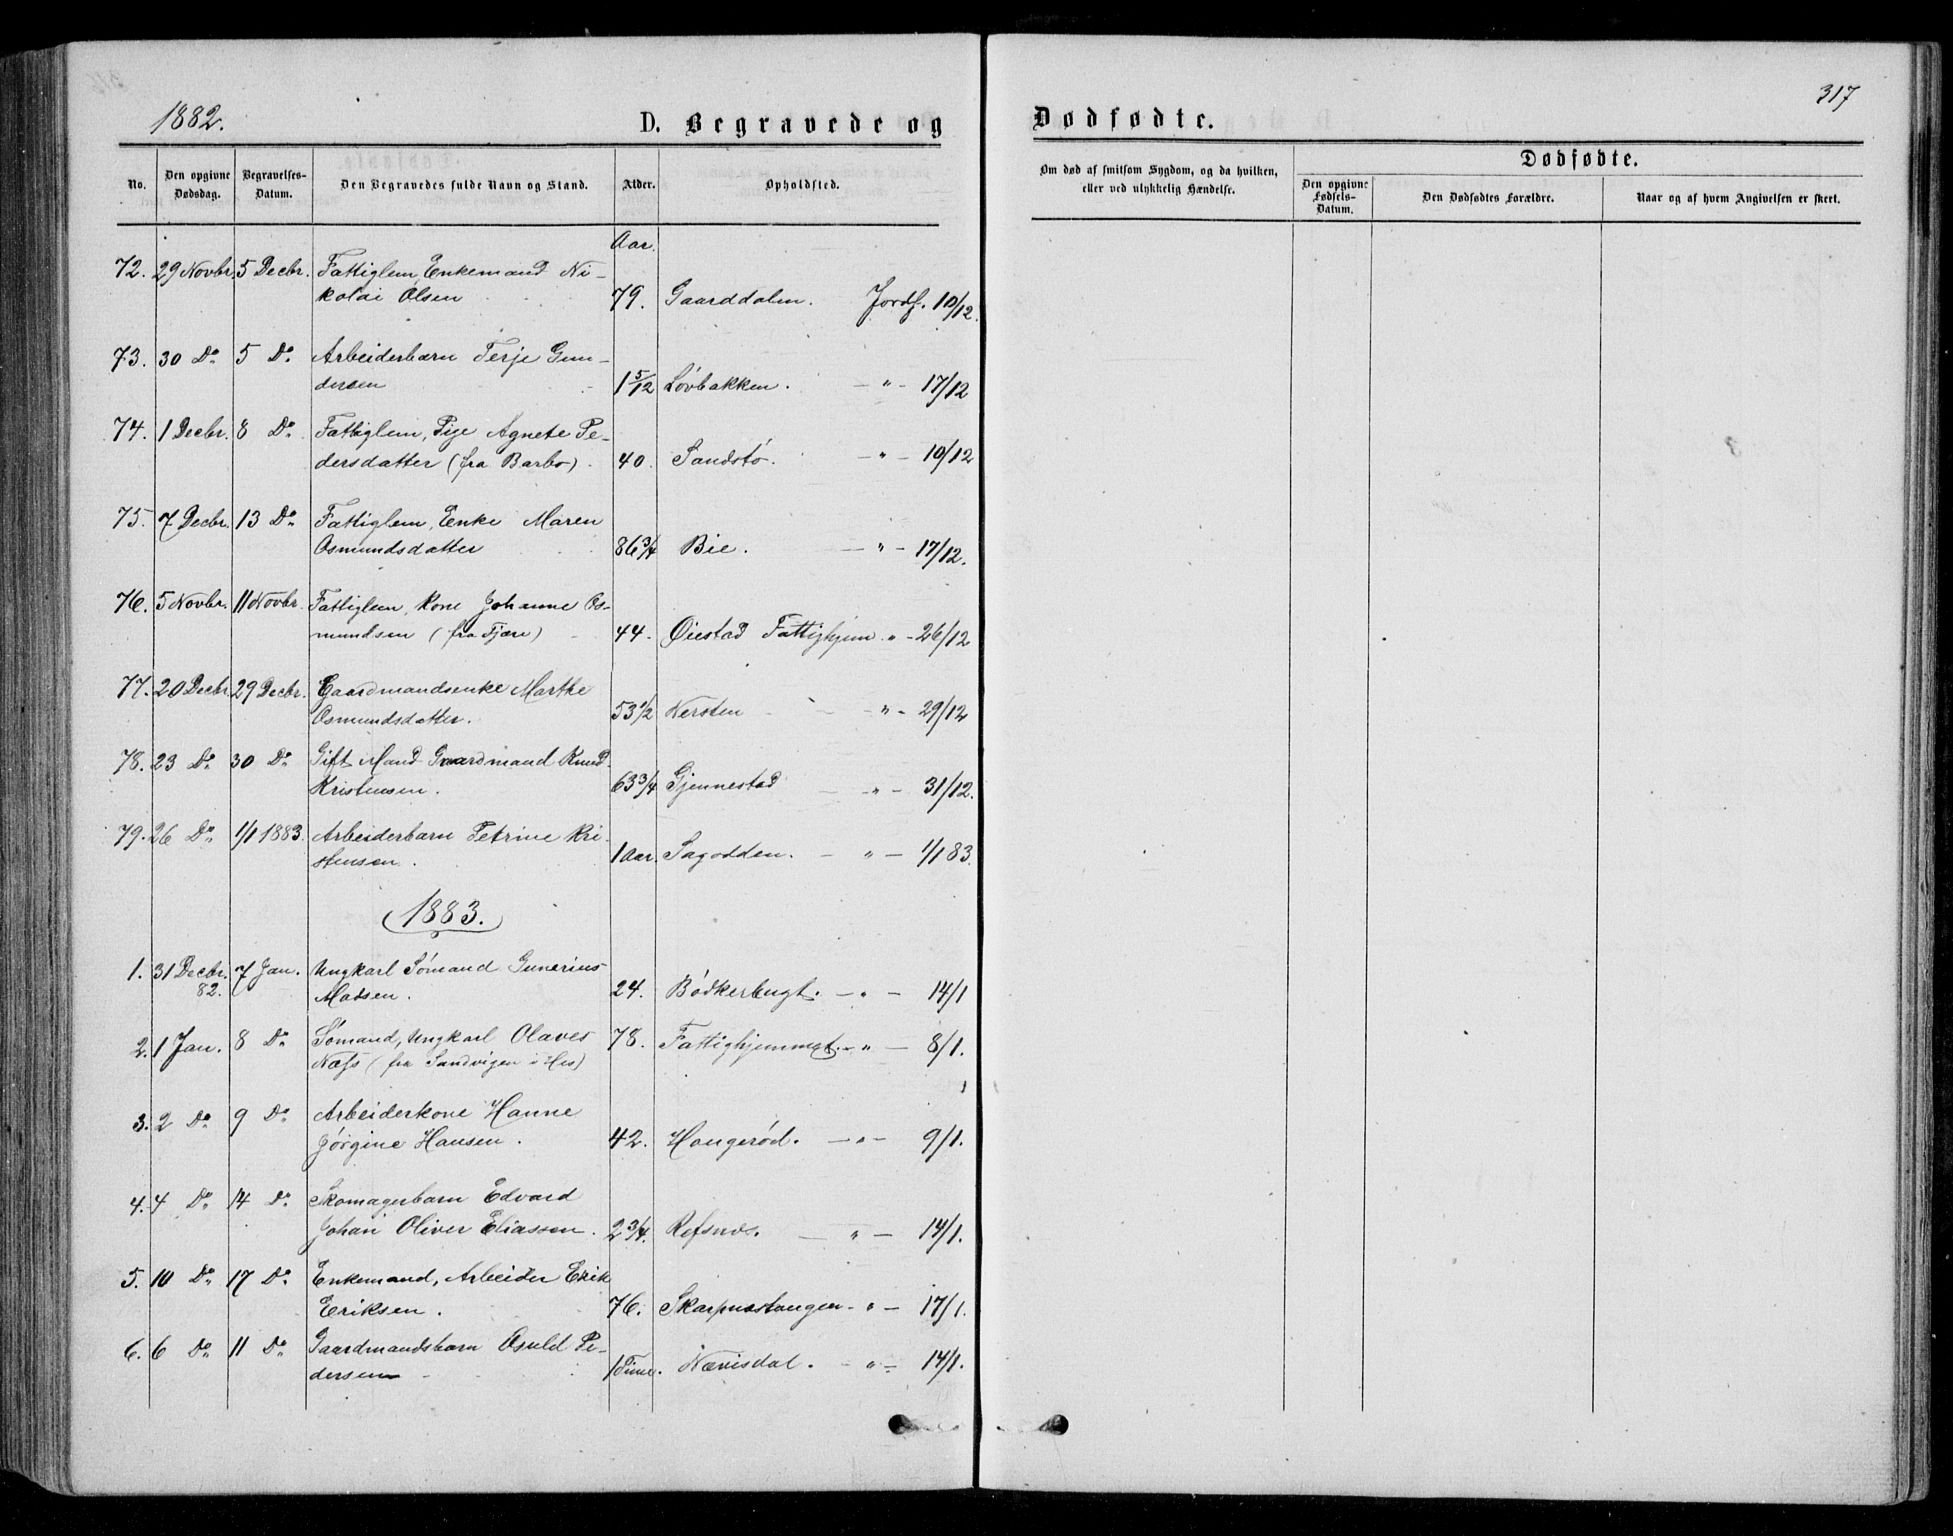 1882.
D. Begravede og
No.
Den opgivne Dødsdag.
Begravelses-Datum.
Den Begravedes fulde Navn og Stand.
Alder.
Opholdsted.
Aar.
72. 29 Novbr. 5 Decbr. Fattiglem, Enkemand Ni-
kolai Olsen 79. Gaarddalen. Jordf. 10/12.
73. 30 Do 5 Do Arbeiderbarn Terje Gun-
dersen 1 5/12 Løvbakken. — " — 17/12
74. 1 Decbr. 8 Do Fattiglem, Pige Agnete Pe-
dersdatter (fra Barbo). 40. Sandstø. — " — 10/12
75. 7 Decbr. 13 Do Fattiglem, Enke Maren
Osmundsdatter 86 3/4 Bie. — " — 17/12.
76. 5 Novbr. 11 Novbr. Fattiglem, Kone Johanne Os-
mundsen (fra Fjære) 44. Øiestad Fattighjem. " - 26/12
77. 20 Decbr. 29 Decbr. Gaardmandsenke Marthe
Osmundsdatter. 53 1/2 Nersten — " — 29/12
78. 23 Do 30 Do Gift Mand Gaardmand Knud
Kristensen. 63 3/4 Gjennestad — " — 31/12.
79. 26 Do 1/1 1883. Arbeiderbarn Petrine Kri-
stensen. 1 Aar. Sagodden. — " — 1/1 83.
1883.
1. 31 Decbr. 7 Jan. Ungkarl Sömand Gunerius
82. Madsen. 24. Bödkerbugt. — " — 14/1
2. 1 Jan. 8 Do Sömand, Ungkarl Olaves 78. Fattighjemmet. — " — 8/1.
Næfs (fra Sandvigen i His)
3. 2 Do 9 Do Arbeiderkone Hanne
Jörgine Hansen. 42. Haugeröd. — " — 9/1.
4. 4 Do 14 Do Skomagerbarn Edvard
Johan Oliver Eliassen. 2 3/4. Refsnes. — " — 14/1.
5. 10 Do 17 Do Enkemand, Arbeider Erik
Eriksen. 76. Skarpnestangen - " — 17/1.
6. 6 Do 11 Do Gaardmandsbarn Osuld Pe-
dersen 1 Time. Nævisdal. - " — 14/1.
317
Dødfødte.
Om død af smitsom Sygdom, og da hvilken,
eller ved ulykkelig Hændelse.
Dødfødte.
Den opgivne Fødsels-Datum.
Den Dødfødtes Forældre.
Naar og af hvem Angivelsen er skeet.